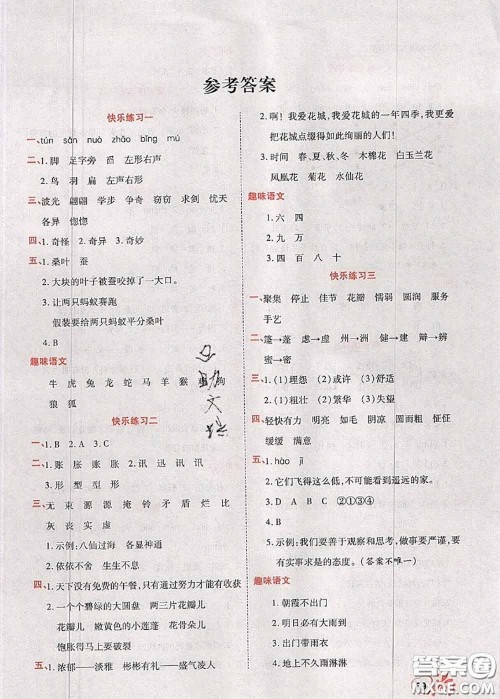 参考答案
快乐练习一
一、tún sǎn nuò zhāo bīng mú
二、1.脚 足字旁 蹈 左形右声
2.鸟 羽 扁 左声右形
三、波光 翩翩 学步 争奇 窃窃 求剑 忧天
各异 惚惚
四、1.奇怪 2.奇异 3.奇妙
五、1.桑叶 蚕
2.大块的叶子被蚕咬掉了一大口。
3.让两只蚂蚁赛跑
假装要给两只蚂蚁平分桑叶
4.B
趣味语文
牛 虎 兔 龙 蛇 马 羊 猴 狗
狼 狐
快乐练习二
一、1.B 2.A 3.C
二、1.账 胀 胀 账 2.讯 迅 讯 迅
3.形 型 型 形
三、无 束 源 源 掩 铃 矛 盾 烂 比
灰 丧 实 虚
1.示例:八仙过海 各显神通
2.依依不舍 生生不息
四、1.天下没有免费的午餐,只有通过努力才能有收获
2.一个个碧绿的大圆盘 两三片花瓣儿
花瓣儿 嫩黄色的小莲蓬 花骨朵儿
饱胀得马上要破裂
五、1.浓郁——淡雅 彬彬有礼——盛气凌人
2.啊!我爱花城,我爱花城的一年四季,我更爱
把花城点缀得如此绚丽的人们!
3.时间 春、夏、秋、冬 木棉花 白玉兰花
凤凰花 菊花 水仙花
趣味语文
1.六 四
2.九 万
3.四 百 八 十
快乐练习三
一、聚集 停止 佳节 花瓣 懦弱 圆润 服务
手艺
二、篷→蓬 虚→虑 州→洲 建→健 辩→辨
蜜→密
三、1.(1)埋怨 (2)或许 (3)舒适
2.(1)粗壮 (2)繁华 (3)失望
四、轻快有力 明朗 如毛 阴凉 圆而粗 怔怔
缓缓 满意
五、1.hào jì
2.它们飞得这么低,不可能看到遥远的家。
3.D A B C ②①③④
4.B
5.示例:我们要善于观察和思考,做事要严谨,要
有实事求是的态度。(答案不唯一)
趣味语文
1.朝霞不出门
2.明日必有大雨到
3.阴雨就在后晌
4.地上不久雨淋淋
答案圈